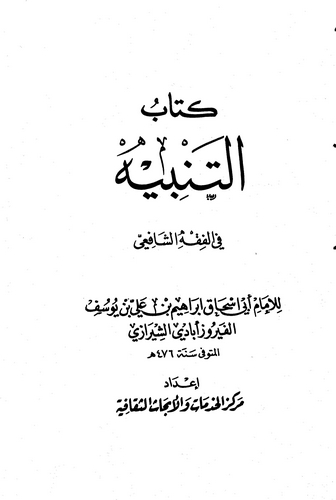 كتاب
التنبيه
في الفقه الشافعي
للإمام أبي اسحاق ابراهيم بن علي بن يوسف
الفيروزآبادي الشيرازي
المتوفى سنة ٤٧٦ هـ
إعداد
مركز الخدمات والأبحاث الثقافية